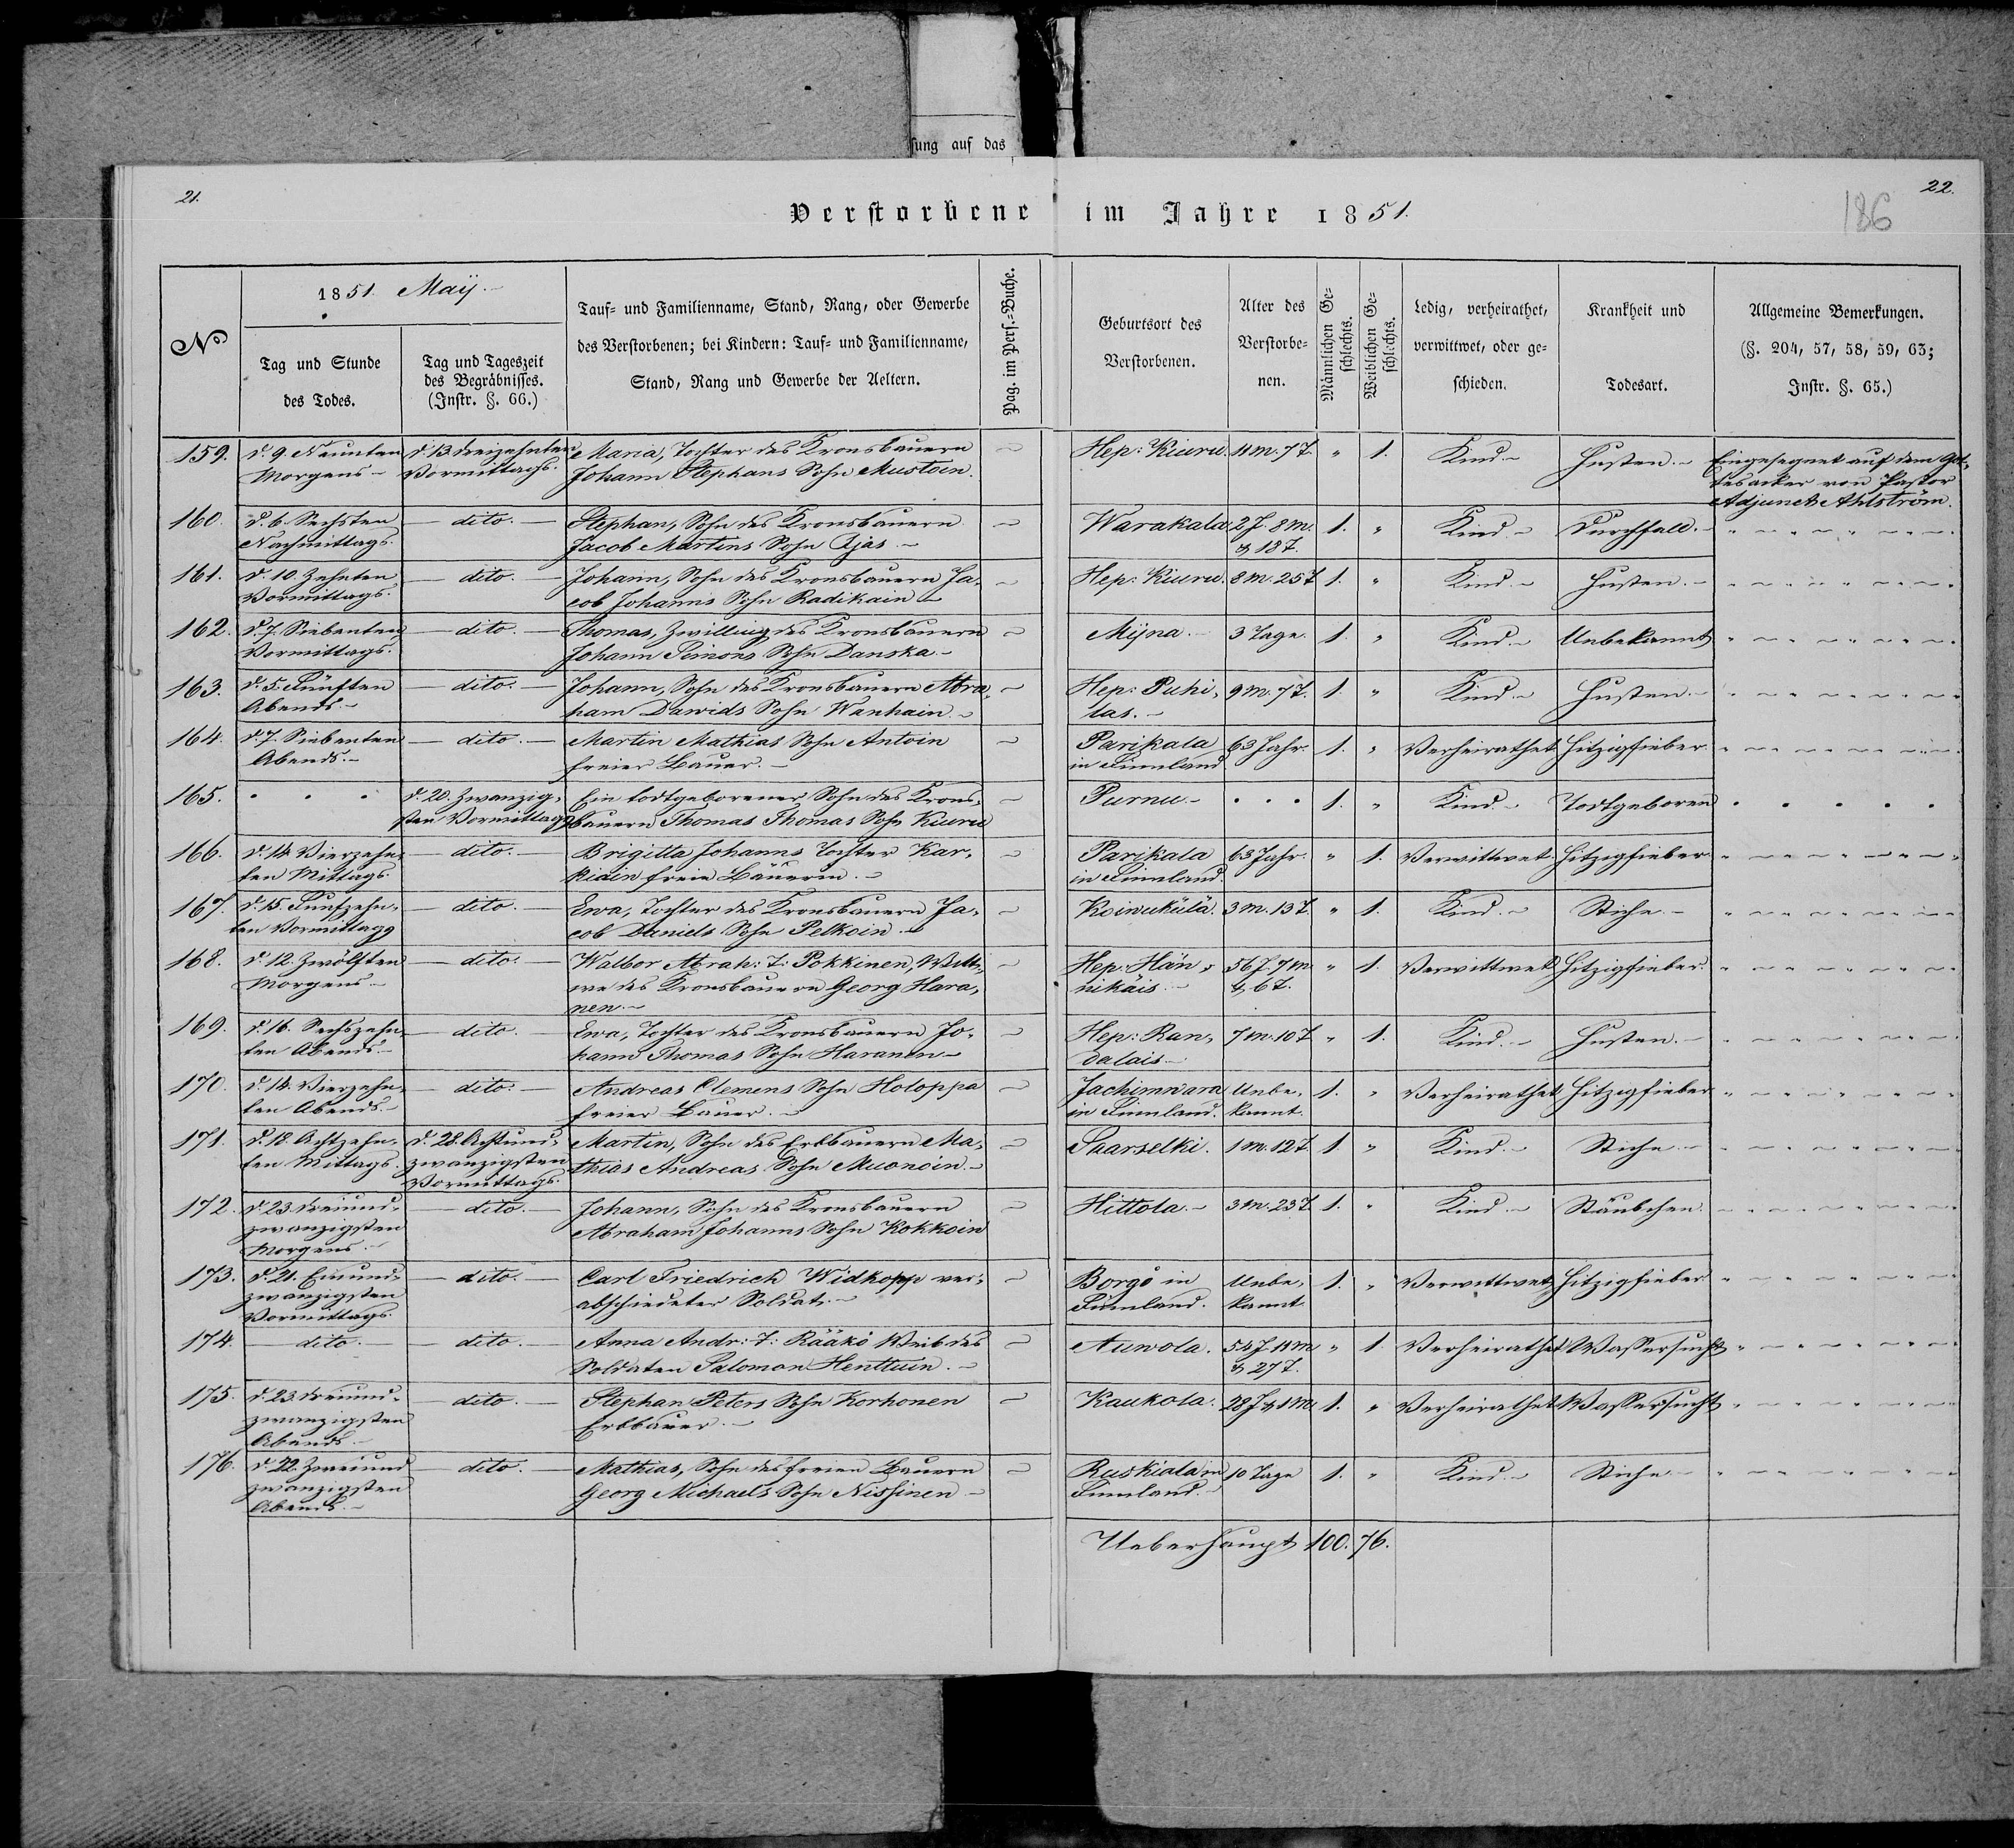 sung auf das
21.
22.
186
Verstorbene im Jahre 1851.
No
1851. Maij.
Tag und Stunde
des Todes.
Tag und Tageszeit
des Begräbnisses.
(Instr. §. 66.)
Tauf- und Familienname, Stand, Rang, oder Gewerbe
des Verstorbenen; bei Kindern: Tauf- und Familienname,
Stand, Rang und Gewerbe der Aeltern.
Pag. im Pers.-Buche.
Geburtsort des
Verstorbenen.
Alter des
Verstorbe-
nen.
Männlichen Ge-
schlechts.
Weiblichen Ge-
schlechts.
Ledig, verheirathet,
verwittwet, oder ge-
schieden.
Krankheit und
Todesart.
Allgemeine Bemerkungen.
(§. 204, 57, 58, 59, 63;
Instr. §. 65.)
159. d. 9. Neunten d. 13. dreizehnten Maria, Tochter des Kronsbauern Hep: Kiuru. 11 m. 7 T. " 1. Kind Husten. Eingesegnet auf dem Got-
Morgens Vormittags. Johann Stephans Sohn Mustoin. tesacker von Pastor
Adjunct Ahlström.
160. d. 6. Sechsten dito. Stephan, Sohn des Kronsbauern Warakala 2 J. 8 m. 1. " Kind Durchfall.
Nachmittags. Jacob Martins Sohn Ajas & 18 T.
161. d. 10. Zehnten dito. Johann, Sohn des Kronsbauern Ja- Hep: Kiuru. 8 m. 25 T 1. " Kind. Husten.
Vormittags. cob Johanns Sohn Radikain
162. d. 7. Siebenten dito. Thomas, Zwilling des Kronsbauern Mijna. 3 Tage. 1. " Kind. Unbekannt
Vormittags. Johann Simons Sohn Danska
163. d. 5. Fünften dito. Johann, Sohn des Kronsbauern Abra- Hep: Puhi- 9 m. 7 T. 1. " Kind. Husten.
Abends. ham Dawids Sohn Wanhain. las.
164. d. 7. Siebenten dito. Martin Mathias Sohn Antoin Parikala 63 Jahr. 1. " Verheirathet Hitzigfieber.
Abends. freier Bauer. in Finnland
165. d. 20. Zwanzig- Ein todtgeborener Sohn des Krons- Purnu. 1. " Kind. Todtgeboren
sten Vormittags bauern Thomas Thomas Sohn Kiuru
166. d. 14. Vierzehn- dito. Brigitta Johanns Tochter Kar- Parikala 63 Jahr. " 1. Verwittwet. Hitzigfieber.
ten Mittags. kiain freie Bäuerin. in Finnland.
167. d. 15. Funfzehn- dito. Ewa, Tochter des Kronsbauern Ja- Koiwukülä. 3 m. 13 T. " 1. Kind. Stiche.
ten Vormittags cob Daniels Sohn Pelkoin.
168. d. 12. Zwölften dito. Walbor Abrah: T: Pokkinen, Witt- Hep: Hän- 56 J. 7 m. " 1. Verwittwet Hitzigfieber.
Morgens we des Kronsbauern Georg Hara- nikäis & 6 T.
nen.
169. d. 16. Sechszehn- dito. Ewa, Tochter des Kronsbauern Jo- Hep: Ran- 7 m. 10 T " 1. Kind. Husten.
ten Abends hann Thomas Sohn Haranen dalais
170. d. 14. Vierzehn- dito. Andreas Clemens Sohn Holoppa Jachimwara Unbe- 1. " Verheirathet Hitzigfieber
ten Abends. freier Bauer. in Finnland. kannt.
171. d. 18. Achtzehn- d. 28. Achtund- Martin, Sohn des Erbbauern Ma- Saarselki. 1 m. 12 T. 1. " Kind. Stiche
ten Mittags. zwanzigsten thias Andreas Sohn Muonoin.
Vormittags.
172. d. 23. dreiund- dito. Johann, Sohn des Kronsbauern Hittola. 3 m. 23 T 1. " Kind. Stäubchen.
zwanzigsten Abraham Johanns Sohn Kokkoin
Morgens.
173. d. 21. Einund- dito. Carl Friedrich Widkopp ver- Borgo in Unbe- 1. " Verwittwet Hitzigfieber
zwanzigsten abschiedeter Soldat. Finnland. kannt
Vormittags.
174. dito. dito. Anna Andr: T: Rääkö Weib des Auwola. 54 J. 11 m " 1. Verheirathet Wassersucht
Soldaten Salomon Henttuin. & 27 T.
175. d. 23. dreiund- dito. Stephan Peters Sohn Korhonen Kaukola. 28 J & 1 m 1. " Verheirathet Wassersucht
zwanzigsten Erbbauer.
Abends.
176. d. 22. Zweiund dito. Mathias, Sohn des freien Bauern Ruskiala in 10 Tage 1. " Kind. Stiche
zwanzigsten Georg Michaels Sohn Nissinen Finnland.
Abends.
Ueberhaupt 100. 76.